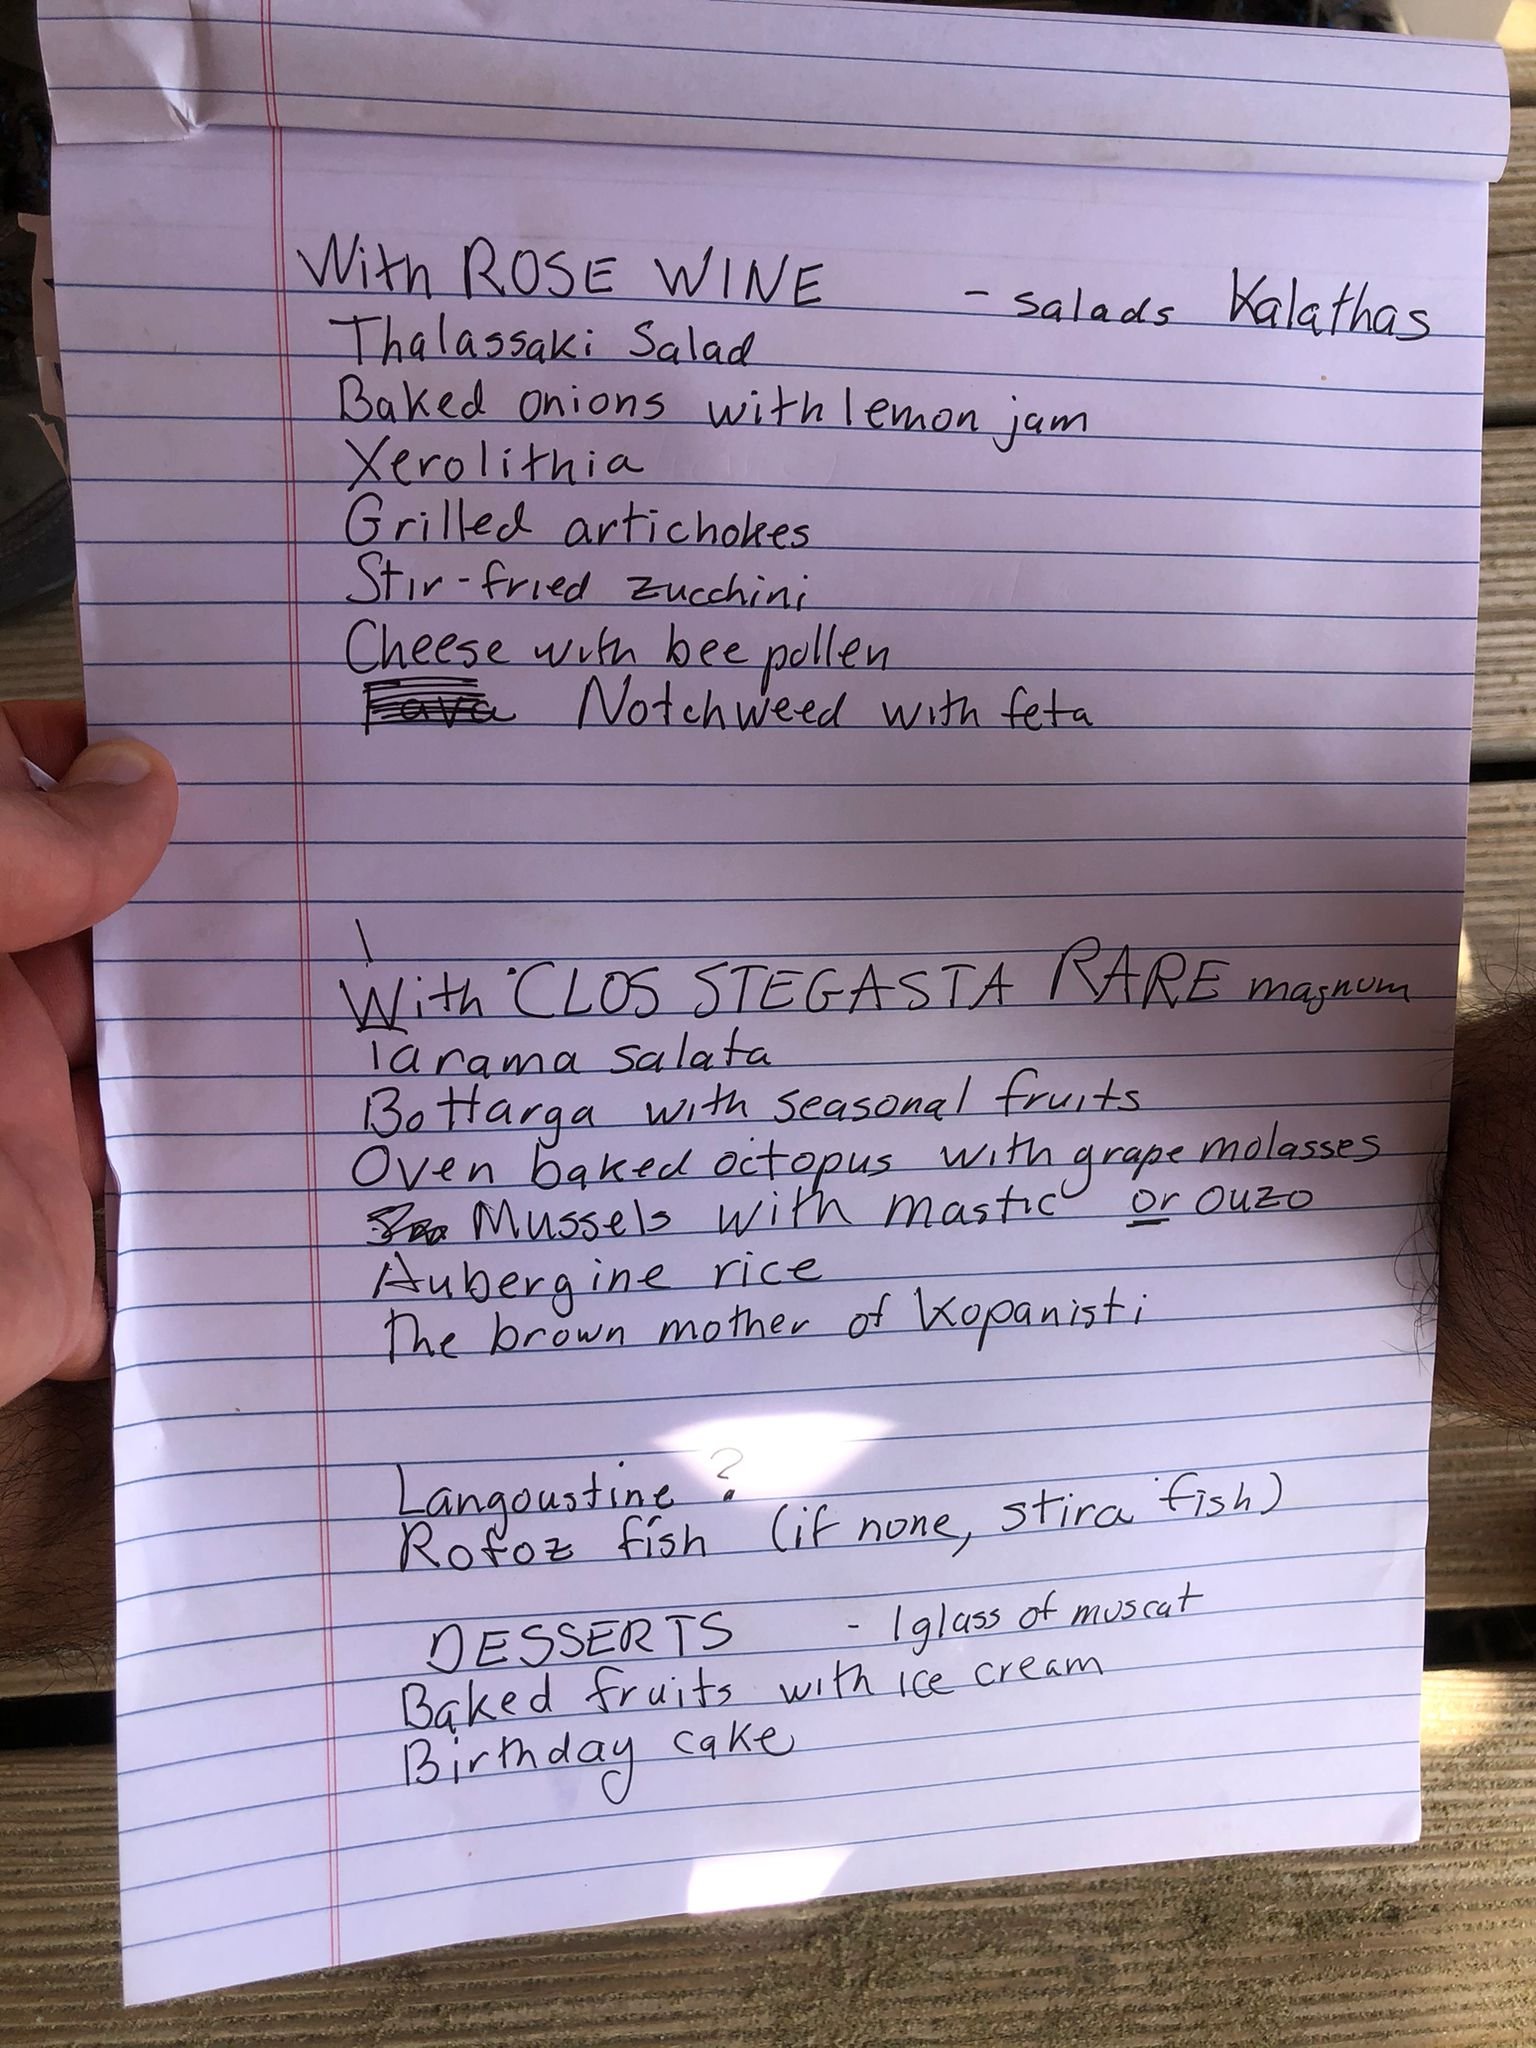 With ROSE WINE - salads Kalathas
Thalassaki Salad
Baked onions with lemon jam
Xerolithia
Grilled artichokes
Stir-fried zucchini
Cheese with bee pollen
Fava Notchweed with feta
With CLOS STEGASTA RARE magnum
Tarama salata
Bottarga with seasonal fruits
Oven baked octopus with grape molasses
Mussels with mastic or ouzo
Aubergine rice
The brown mother of Kopanisti
Langoustine ?
Rofoz fish (if none, stira fish)
DESSERTS - 1 glass of muscat
Baked fruits with ice cream
Birthday cake